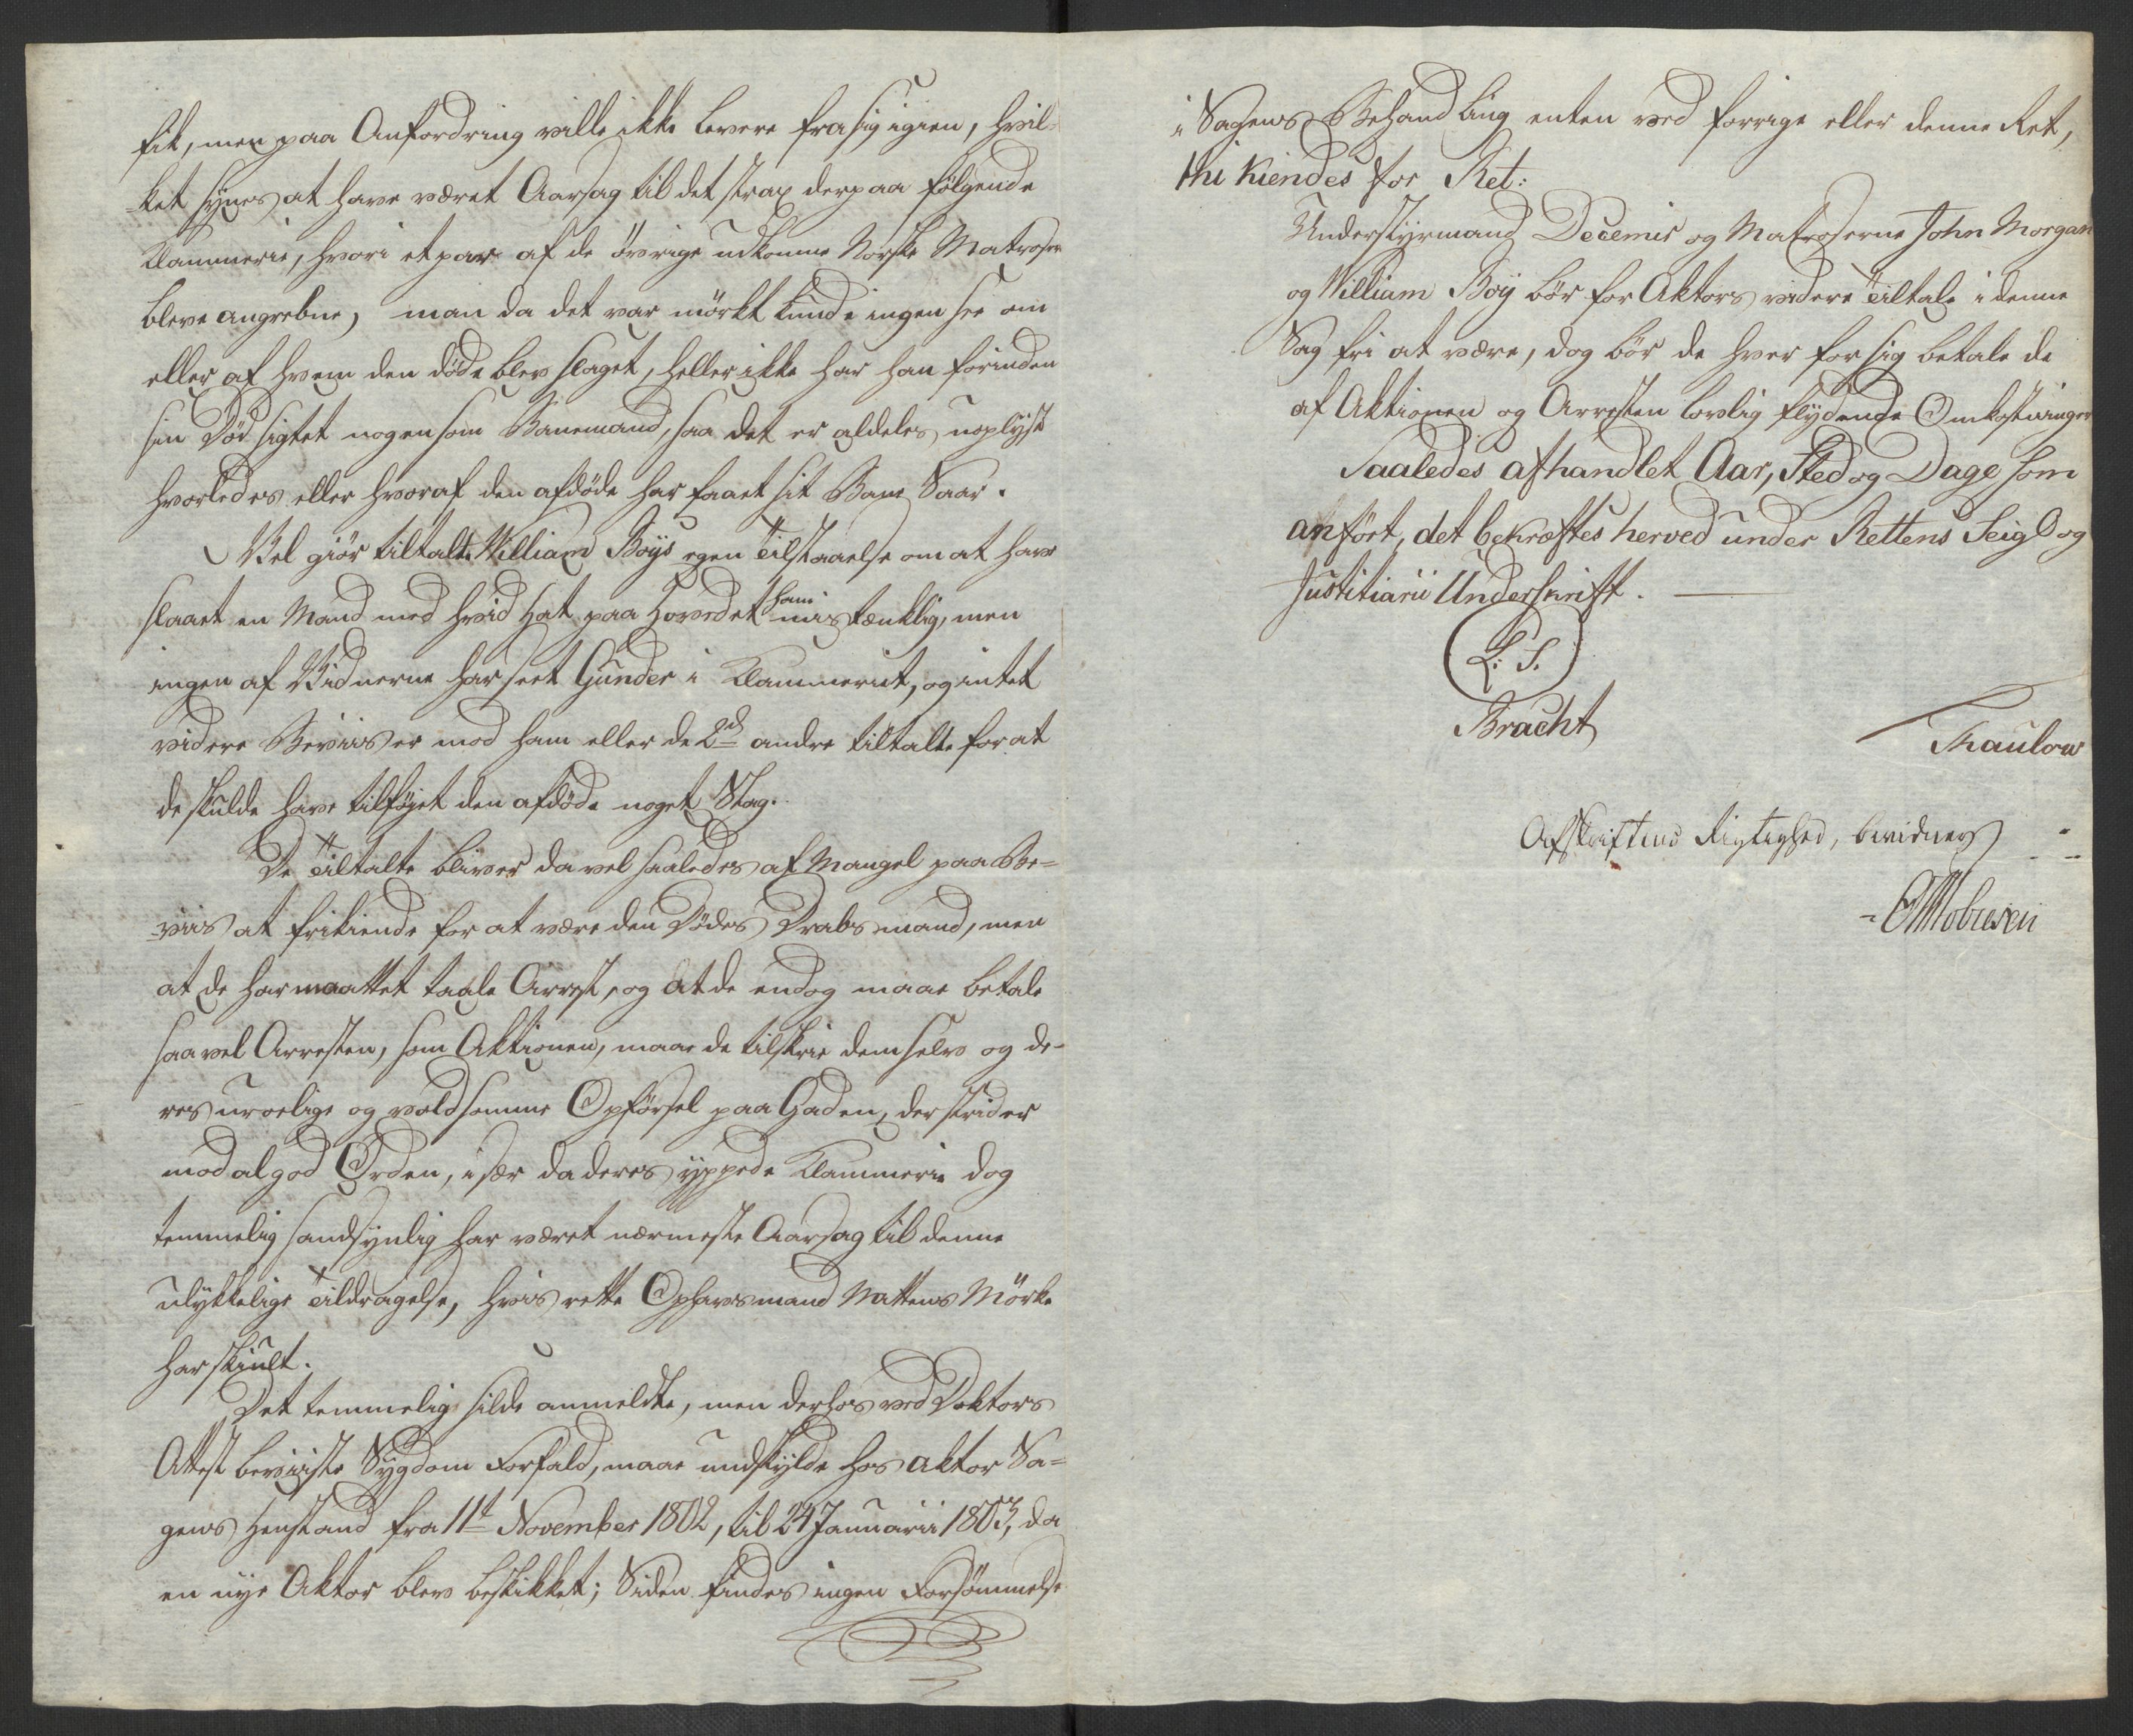 fik, men paa Anfordring ville ikke levere fra sig igien, hvil-
ket synes at have været Aarsag til det strax derpaa følgende
Klammerie, hvori et par af de övrige udkomne Norske Matroser
bleve angrebne, men da det var mörkt kunde ingen see om
eller af hvem den döde blev slaget, heller ikke har han forinden
sin Död sigtet nogen som Banemand, saa det er aldeles uoplyst
hvorledes eller hvoraf den afdöde har faaet sit Bane Saar.
Vel giör tiltalte William Boÿs egen Tilstaaelse om at have
slaaet en Mand med hvid Hat paa Hovedet ham mistænklig, men
ingen af Vidnerne har seet Gunder i Klammeriet, og intet
videre Beviis er mod ham eller de 2de andre tiltalte for at
de skulde have tilföjet den afdöde noget Slag.
De Tiltalte bliver da vel saaledes af Mangel paa Be=
=viis at frikiende for at være den Dödes Drabsmand, men
at de har maattet taale Arrest, og at de endog maae betale
saavel Arresten, som Aktionen, maae de tilskrive dem selv og de-
res uroelige og voldsomme Opförsel paa Gaden, der strider
mod al god Orden, især da deres yppede Klammerie dog
temmelig sandsynlig har været nærmeste Aarsag til denne
ulykkelige Tildragelse, hvis rette Ophavsmand Nattens Mörke
har skiult.
Det temmelig silde anmeldte, men derhos ved Doktors
Attest beviiste Sygdoms Forfald, maae undskylde hos Aktor Sa=
gens Henstand fra 11t November 1802, til 24 Januarii 1803, da
en nye Aktor blev beskikket; Siden findes ingen Forsömmelse
i Sagens Behandling enten ved forrige eller denne Ret,
thi kiendes for Ret:
Understyrmand Decemir og Matroserne John Morgan
og William Boÿ bör for Aktors videre Tiltale i denne
Sag fri at være, dog bör de hver for sig betale de
af Aktionen og Arresten lovlig flydende Omkostninger
Saaledes afhandlet Aar, Sted og Dage som
anfört, det bekræftes herved under Rettens Seigl og
Justitiarii Underskrift.
L. S.
Bracht
Thaulow
Afskriftens Rigtighed, bevidner